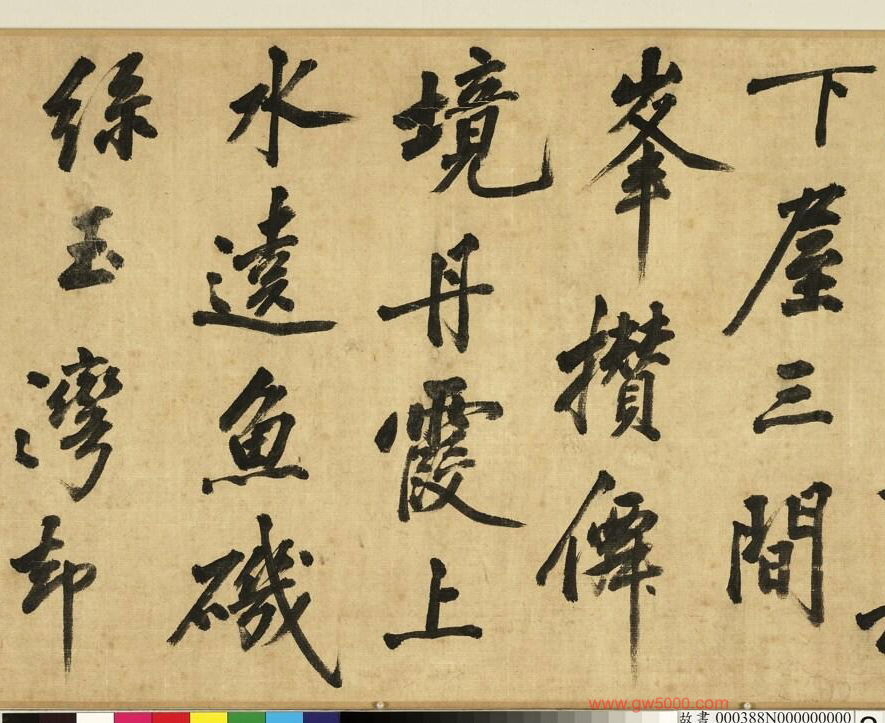 下屋三間
峯攢僊
境丹霞上
水遠魚磯
綠玉灣却
www.gw5000.com
故書 000388N000000000